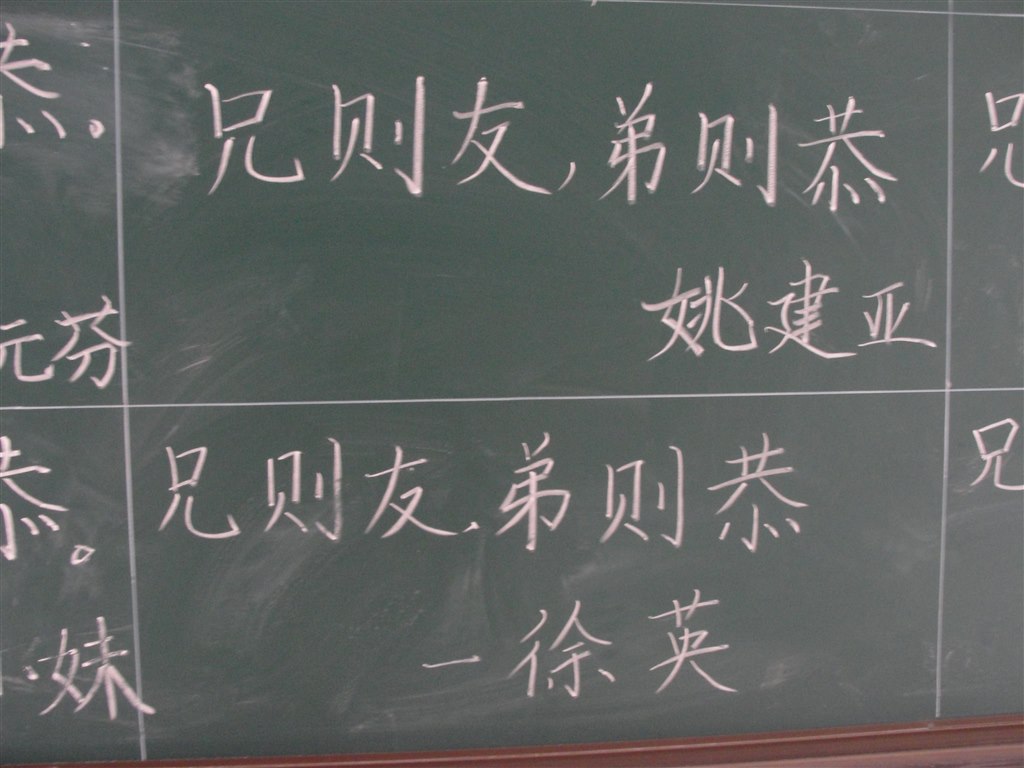 恭。
兄则友,弟则恭
兄
元芬
姚建亚
恭。
兄则友.弟则恭
兄
妹
一徐英